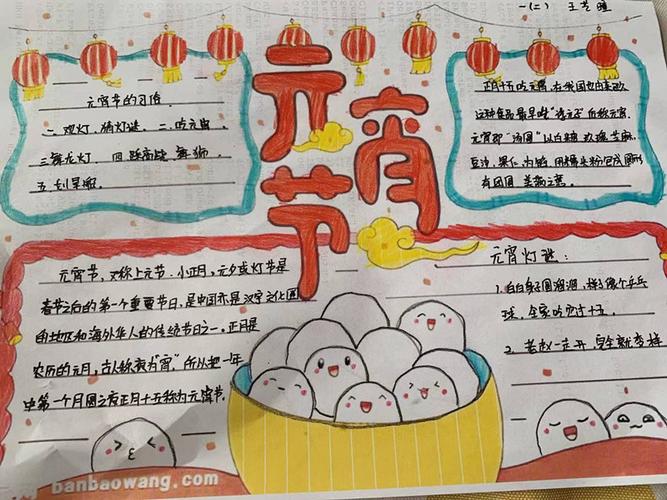 一(二) 王艺
元宵节
元宵节的习俗
一.观灯、猜灯谜、二.吃元宵、
三舞龙灯、四.踩高跷 舞狮、
五.划旱船
正月十五吃元宵,在我国也由来
这种食品最早叫"浮元子"后称元宵,
元宵即"汤圆"以白糖、玫瑰、芝麻、
豆沙、果仁、为馅,用糯米粉包成圆形
有团圆 美满之意。
元宵节,又称上元节.小正月,元夕或灯节是
春节之后的第一个重要节日,是中国亦是汉字文化圈
的地区和海外华人的传统节日之一。正月是
农历的元月,古人称夜为"宵",所以把一年
中第一个月圆之夜正月十五称为元宵节。
元宵灯谜:
1. 白白身子圆溜溜,
球,全家吃
2. 走
banbaowang.com